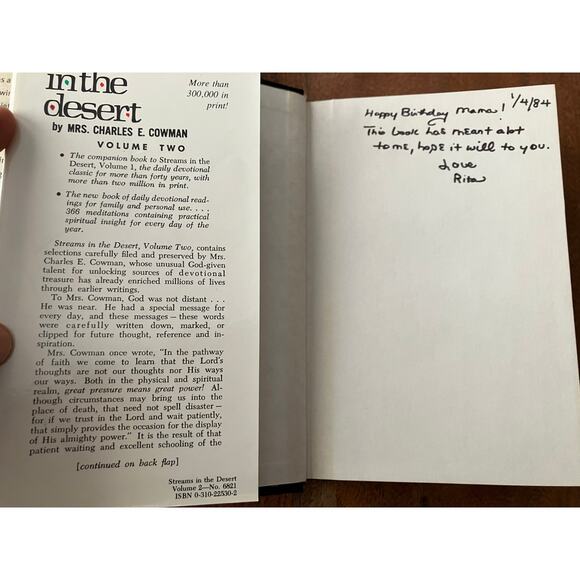 in the
desert
by MRS. CHARLES E. COWMAN
VOLUME TWO
More than
300,000 in
print!
• The companion book to Streams in the
Desert, Volume 1, the daily devotional
classic for more than forty years, with
more than two million in print.
• The new book of daily devotional read-
ings for family and personal use. . . .
366 meditations containing practical
spiritual insight for every day of the
year.
Streams in the Desert, Volume Two, contains
selections carefully filed and preserved by Mrs.
Charles E. Cowman, whose unusual God-given
talent for unlocking sources of devotional
treasure has already enriched millions of lives
through earlier writings.
To Mrs. Cowman, God was not distant . . .
He was near. He had a special message for
every day, and these messages—these words
were carefully written down, marked, or
clipped for future thought, reference and in-
spiration.
Mrs. Cowman once wrote, "In the pathway
of faith we come to learn that the Lord's
thoughts are not our thoughts nor His ways
our ways. Both in the physical and spiritual
realm, great pressure means great power! Al-
though circumstances may bring us into the
place of death, that need not spell disaster—
for if we trust in the Lord and wait patiently,
that simply provides the occasion for the display
of His almighty power." It is the result of that
patient waiting and excellent schooling of the
[continued on back flap]
Streams in the Desert
Volume 2—No. 6821
ISBN 0-310-22530-2
1/4/84
Happy Birthday Mama!
This book has meant alot
to me, hope it will to you.
Love
Rita